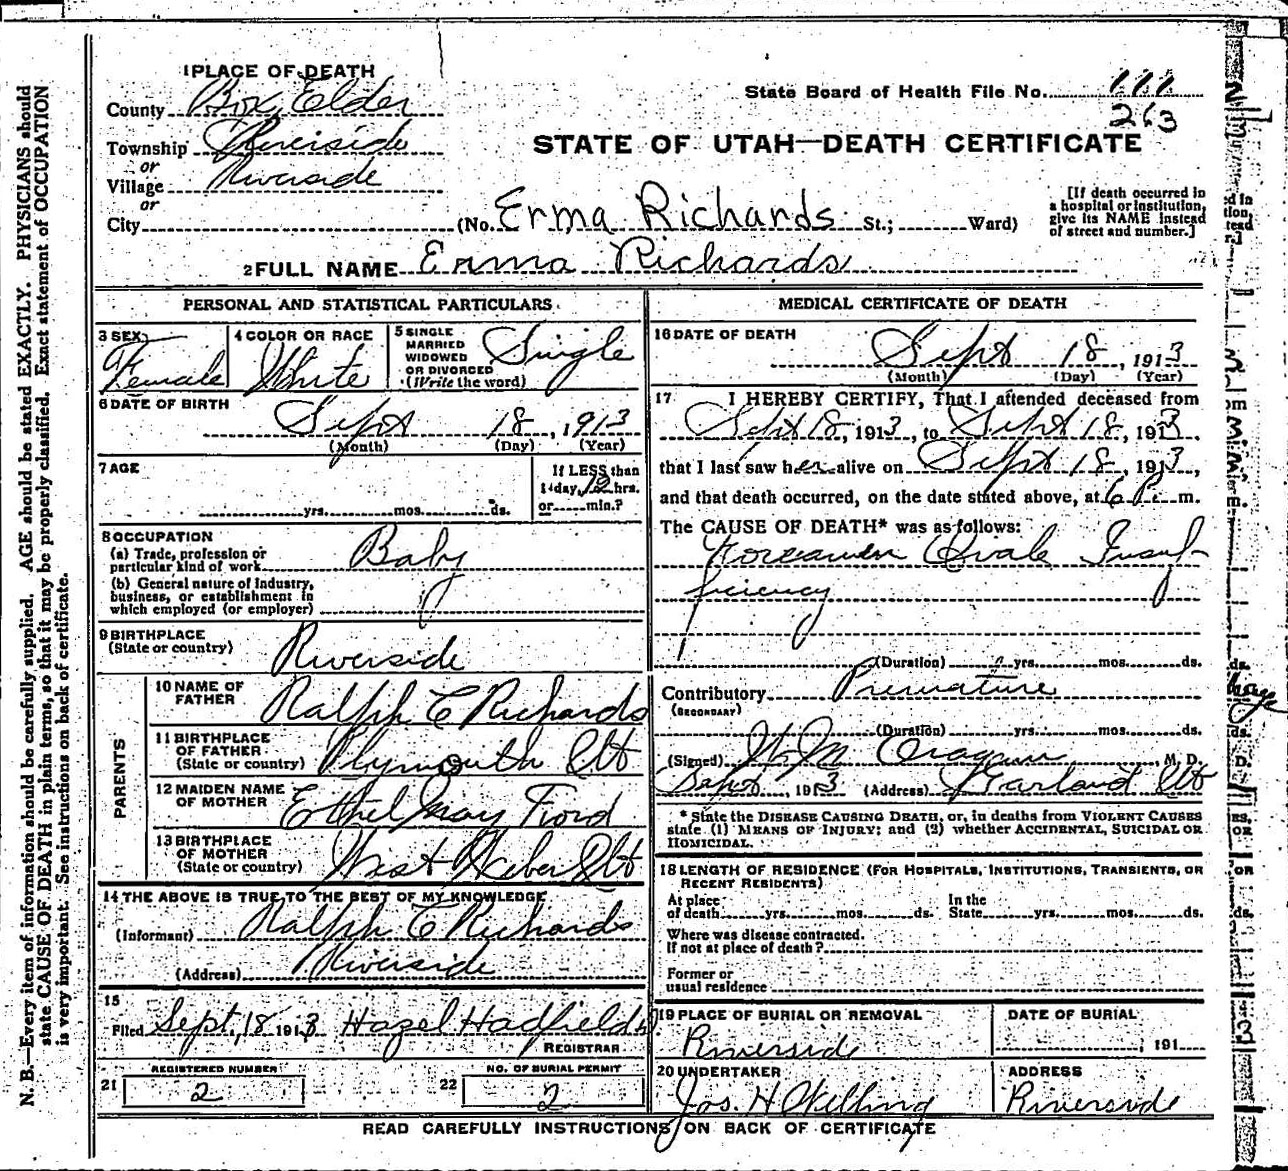 1 PLACE OF DEATH
County Box Elder
Township Riverside
or
Village Riverside
or
City
State Board of Health File No. 111
263
STATE OF UTAH—DEATH CERTIFICATE
(No. Erma Richards St.; Ward)
[If death occurred in
a hospital or institution,
give its NAME instead
of street and number.]
2 FULL NAME Erma Richards
PERSONAL AND STATISTICAL PARTICULARS
3 SEX
Female
4 COLOR OR RACE
White
5 SINGLE
MARRIED
WIDOWED
OR DIVORCED
(Write the word)
Single
6 DATE OF BIRTH
Sept 18, 1913
(Month) (Day) (Year)
7 AGE
yrs. mos. ds.
If LESS than
1 day, 12 hrs.
or min.?
8 OCCUPATION
(a) Trade, profession or
particular kind of work
Baby
(b) General nature of industry,
business, or establishment in
which employed (or employer)
9 BIRTHPLACE
(State or country)
Riverside
PARENTS
10 NAME OF
FATHER
Ralph C Richards
11 BIRTHPLACE
OF FATHER
(State or country)
Plymouth Ut
12 MAIDEN NAME
OF MOTHER
Ethel May Ford
13 BIRTHPLACE
OF MOTHER
(State or country)
West Weber Ut
14 THE ABOVE IS TRUE TO THE BEST OF MY KNOWLEDGE
(Informant) Ralph C Richards
(Address) Riverside
15
Filed Sept. 18 1913 Hazel Hadfield
REGISTRAR
REGISTERED NUMBER
21 2
NO. OF BURIAL PERMIT
22 2
MEDICAL CERTIFICATE OF DEATH
16 DATE OF DEATH
Sept 18, 1913
(Month) (Day) (Year)
17 I HEREBY CERTIFY, That I attended deceased from
Sept 18, 1913, to Sept 18, 1913,
that I last saw her alive on Sept 18, 1913,
and that death occurred, on the date stated above, at 6 P. m.
The CAUSE OF DEATH* was as follows:
Foreamen Ovale Insuf-
ficiency
(Duration) yrs. mos. ds.
Contributory Premature
(SECONDARY)
(Duration) yrs. mos. ds.
(Signed) M. D.
Sept, 1913 (Address) Garland Ut
* State the DISEASE CAUSING DEATH, or, in deaths from VIOLENT CAUSES
state (1) MEANS OF INJURY; and (2) whether ACCIDENTAL, SUICIDAL OR
HOMICIDAL.
18 LENGTH OF RESIDENCE (FOR HOSPITALS, INSTITUTIONS, TRANSIENTS, OR
RECENT RESIDENTS)
At place
of death yrs. mos. ds.
In the
State yrs. mos. ds.
Where was disease contracted.
If not at place of death?
Former or
usual residence
19 PLACE OF BURIAL OR REMOVAL
Riverside
DATE OF BURIAL
, 191
20 UNDERTAKER
Jos. H Welling
ADDRESS
Riverside
READ CAREFULLY INSTRUCTIONS ON BACK OF CERTIFICATE
N. B.—Every item of information should be carefully supplied. AGE should be stated EXACTLY. PHYSICIANS should
state CAUSE OF DEATH in plain terms, so that it may be properly classified. Exact statement of OCCUPATION
is very important. See instructions on back of certificate.